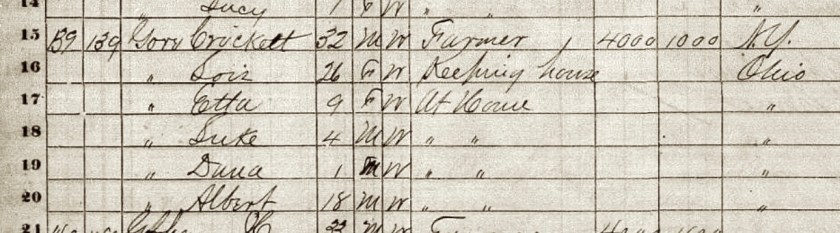 14 Lucy 1 F W " "
15 139 139 Gory Crockett 32 M W Farmer 4000 1000 N.Y.
16 " Lois 26 F W Keeping house Ohio
17 " Etta 9 F W At Home "
18 " Luke 4 M W " " "
19 " Dana 1 M W " " "
20 " Albert 18 M W " " "
21